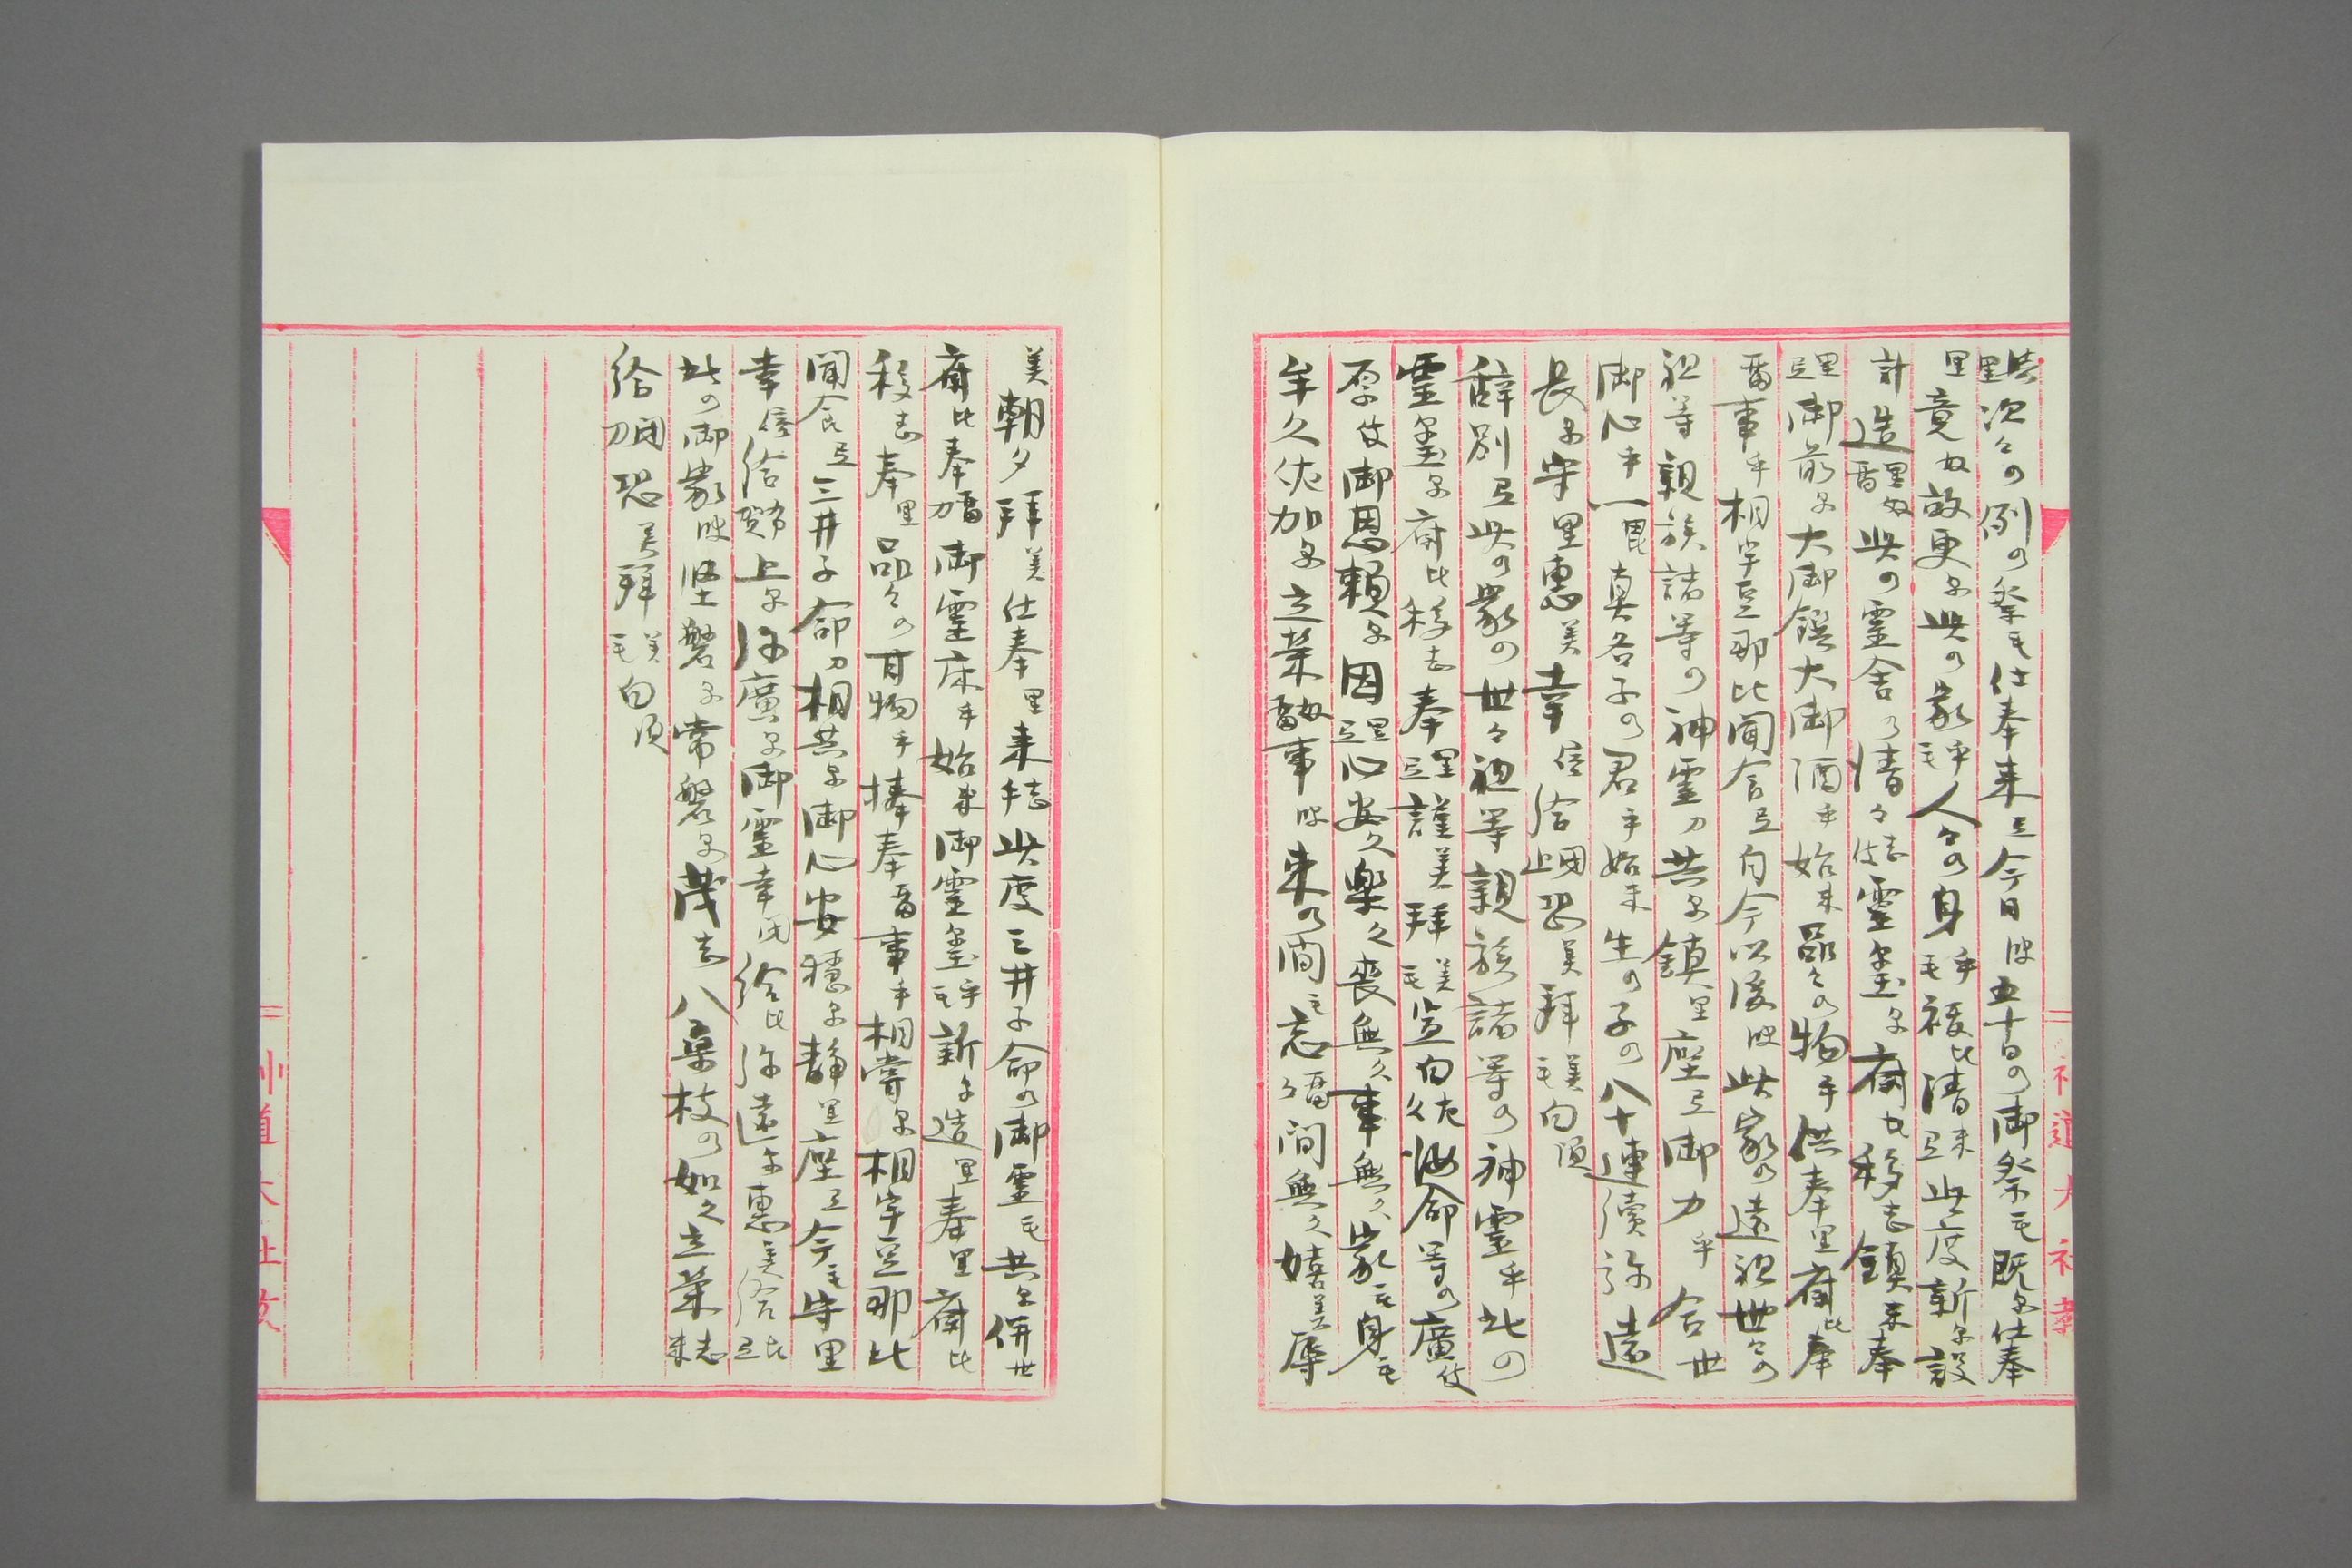 里次々の例の祭毛仕奉来弖今日波五十日の御祭毛既尓仕奉
里竟奴故更尓此の家乎毛人々の身乎毛祓比清米弖此度新尓設
計造里奴留此の霊舎乃清々志伎霊璽尓斎比移志鎮米奉
里弖御前尓大御饌大御酒乎始米品々の物乎供奉里斎比奉
留事乎相宇豆那比聞食弖自今以後波此家の遠祖世々の
祖等親族諸等の神霊刀共尓鎮里座弖御力乎合世
御心乎一尓真名子の君乎始米生の子の八十連続弥遠
長尓守里恵美幸倍給閉止恐美拝美毛白須
辞別弖此の家の世々祖等親族諸等の神霊乎此の
霊璽尓斎比移志奉里弖謹美拝美毛白久汝命等の広伎
厚伎御恩頼尓因里弖心安久楽久喪無久事無久家毛身毛
牟久佐加尓立栄奴留事波束の間毛忘留々間無久嬉美辱
美朝夕拝美仕奉里来志乎此度三井子命の御霊毛共尓併世
斎比奉留刀御霊床乎始米御霊璽乎毛新尓造里奉里斎比
移志奉里品々の甘物乎捧奉留事乎相嘗尓相宇豆那比
聞食弖三井子命刀相共尓御心安穏尓静里座弖今毛守里
幸倍給布賀上尓弥広尓御霊幸閉給比弥遠尓恵美給比弖
此の御家波堅磐尓常磐尓茂志八桑枝の如久立栄志米
給閉刀恐美拝美毛白須
神道大社教